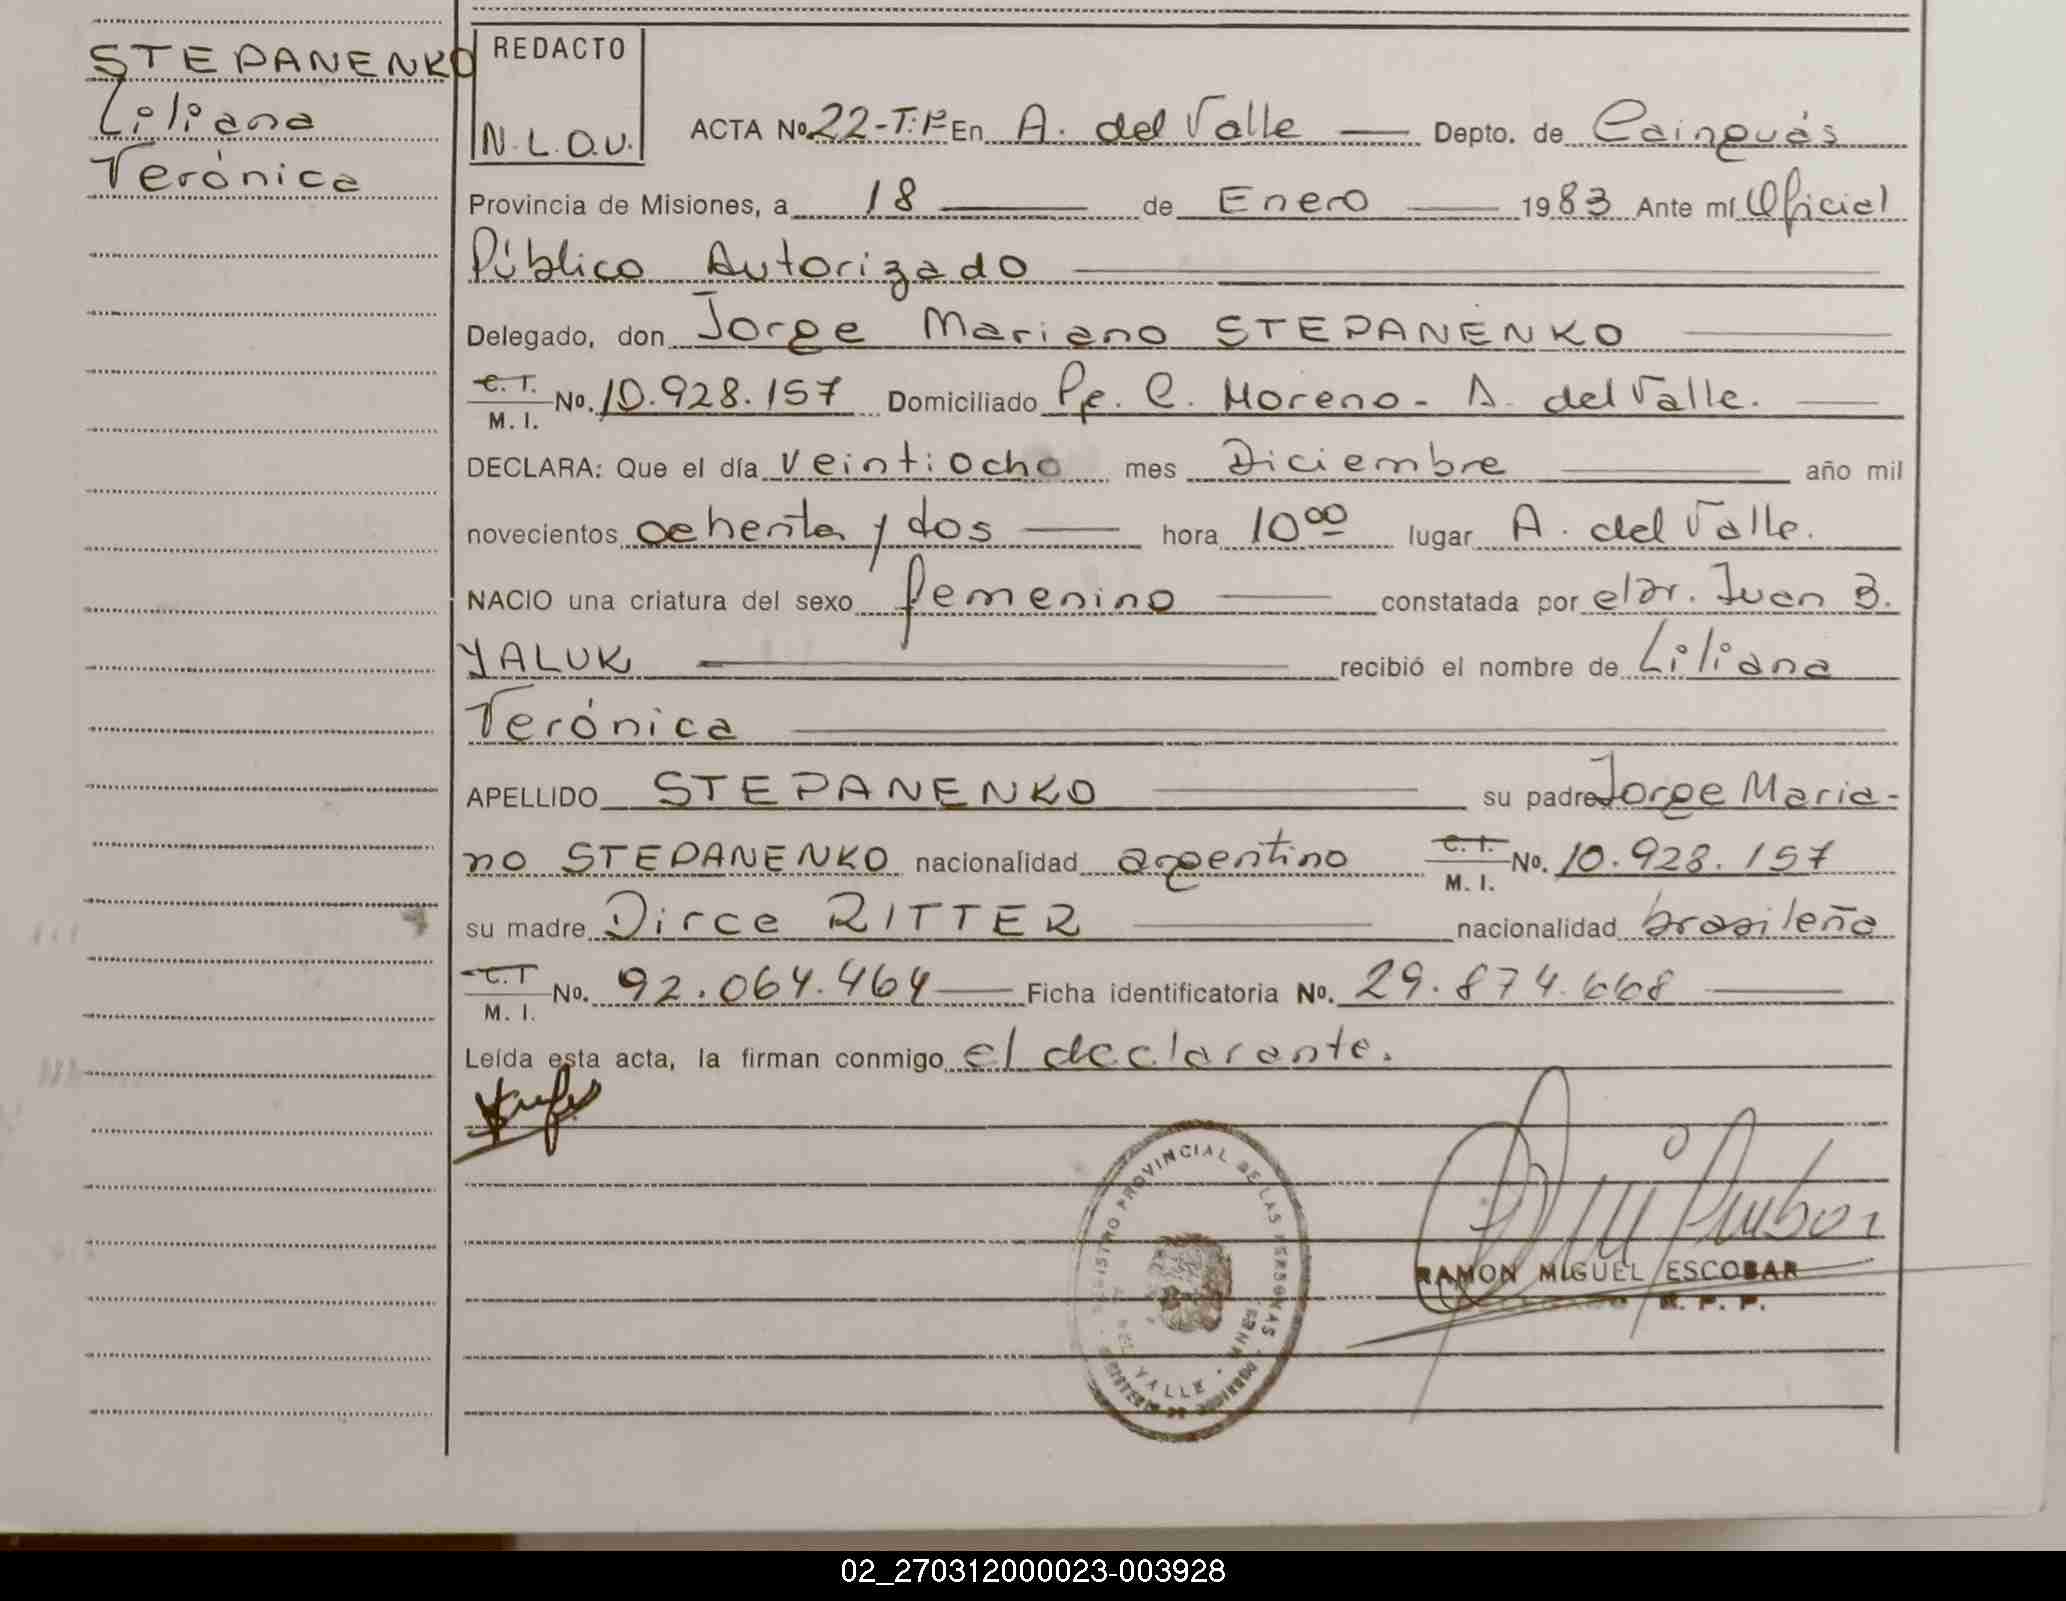 STEPANENKO
Liliana
Verónica
REDACTO
N.L.O.V.
ACTA No. 22-T:1º En A. del Valle Depto. de Cainguás
Provincia de Misiones, a 18 de Enero 1983 Ante mí Oficial
Público Autorizado
Delegado, don Jorge Mariano STEPANENKO
C.I. M.I. No. 10.928.157 Domiciliado Pje. C. Moreno - A. del Valle.
DECLARA: Que el día veintiocho mes Diciembre año mil
novecientos ochenta y dos hora 10⁰⁰ lugar A. del Valle.
NACIO una criatura del sexo femenino constatada por el Dr. Juan B.
YALUK recibió el nombre de Liliana
Verónica
APELLIDO STEPANENKO su padre Jorge Maria-
no STEPANENKO nacionalidad argentino C.I. M.I. No. 10.928.157
su madre Dirce RITTER nacionalidad brasileña
C.I M.I. No. 92.064.464 Ficha identificatoria No. 29.874.668
Leída esta acta, la firman conmigo el declarante.
REGISTRO PROVINCIAL DE LAS PERSONAS
VALLE
RAMON MIGUEL ESCOBAR
R. P. P.
02_270312000023-003928